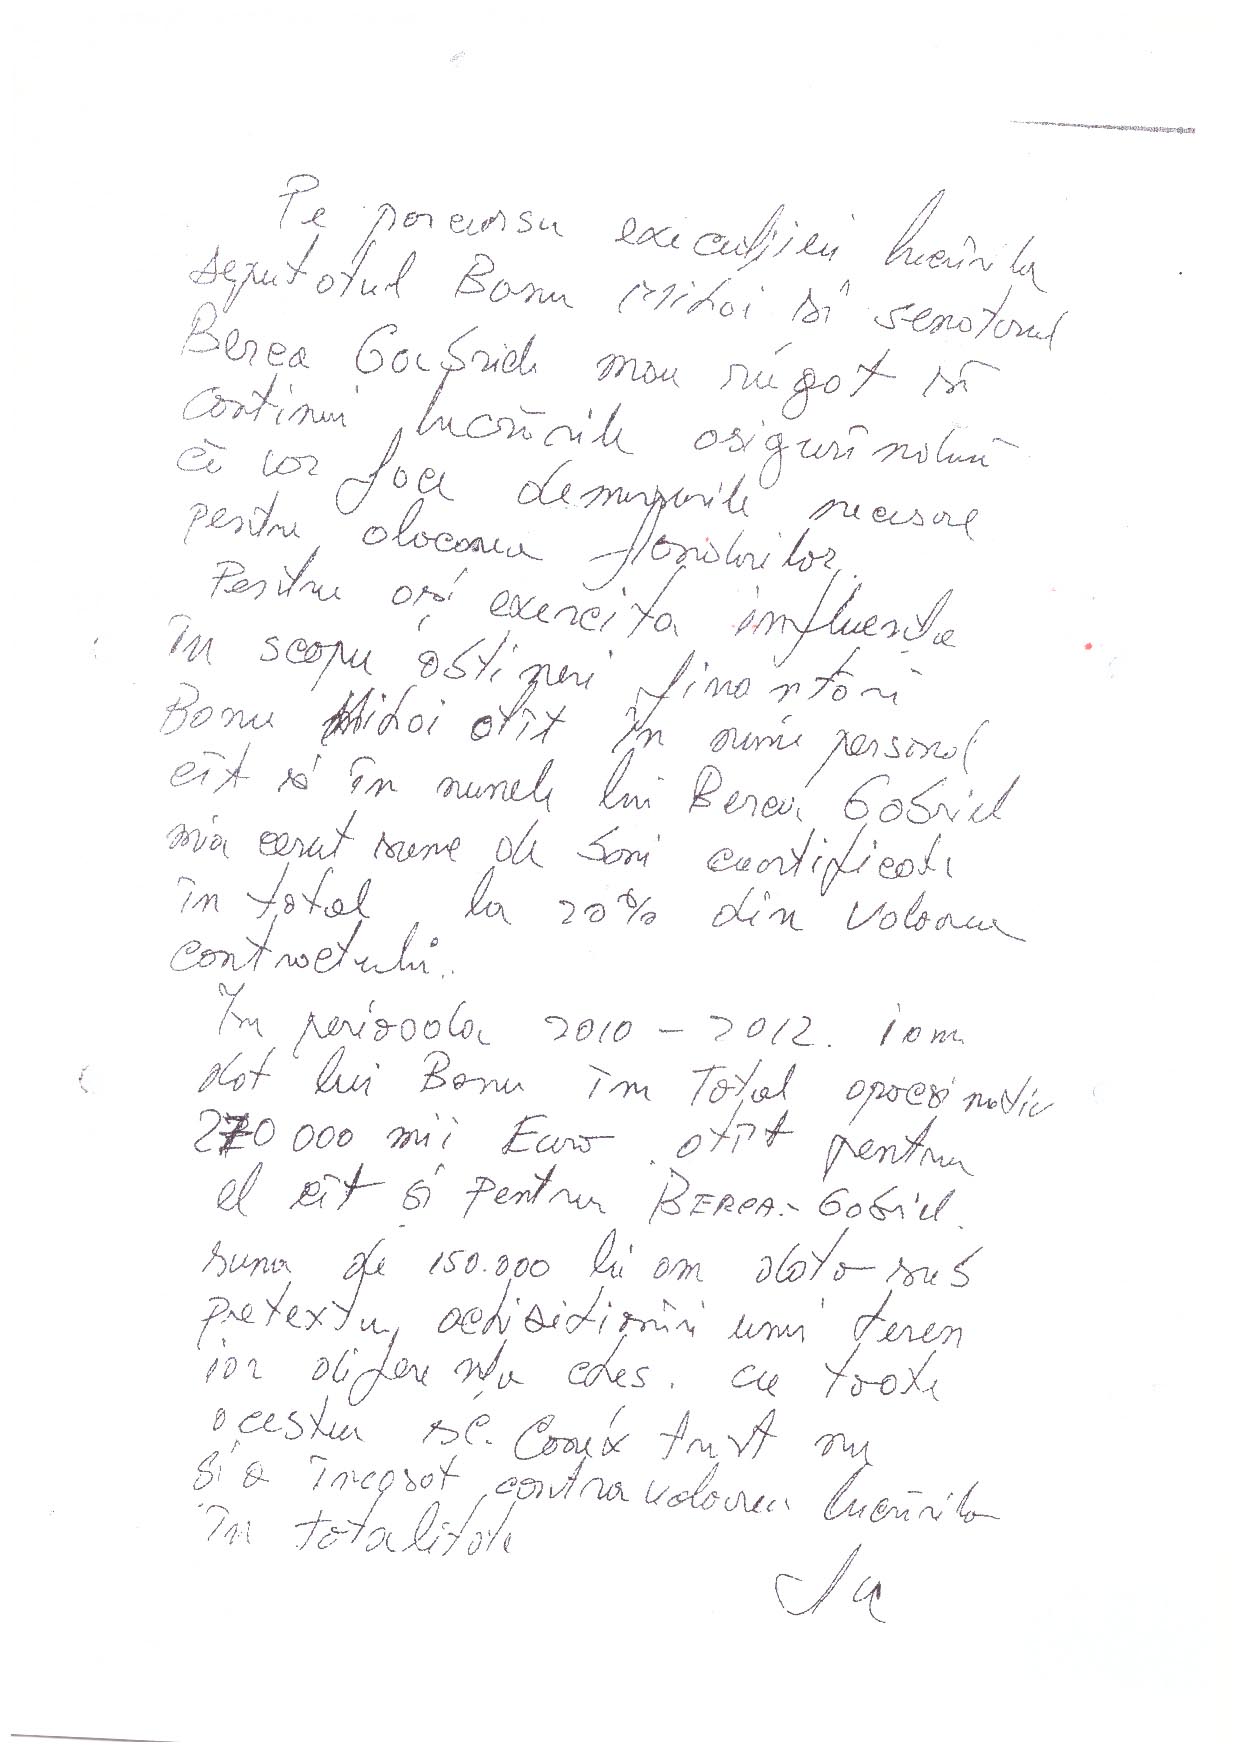 Pe parcursu execuției lucrărila
deputatul Banu Mihai si senatorul
Berea Gabriel mau rugat să
continui lucrările asigurîndună
că vor face demersurile necesare
pentru alocarea fondurilor.
Pentru ași exercita influența
în scopu obtineri finanțări
Banu Mihai atît în nume personal
cît si în numele lui Berea Gabriel
mia cerut sume de bani cuantificate
în total la 20% din valoarea
contractului..
In perioada 2010 - 2012. iam
dat lui Banu în Total aproximativ
270 000 mii Euro atît pentru
el cît și pentru BEREA - Gabriel.
suma de 150.000 lei am dato sub
pretextu achisitionări unui teren
iar diferența cash. cu toate
acestea sc. Conix trust nu
și a încasat contravaloarea lucrărila
în totalitate